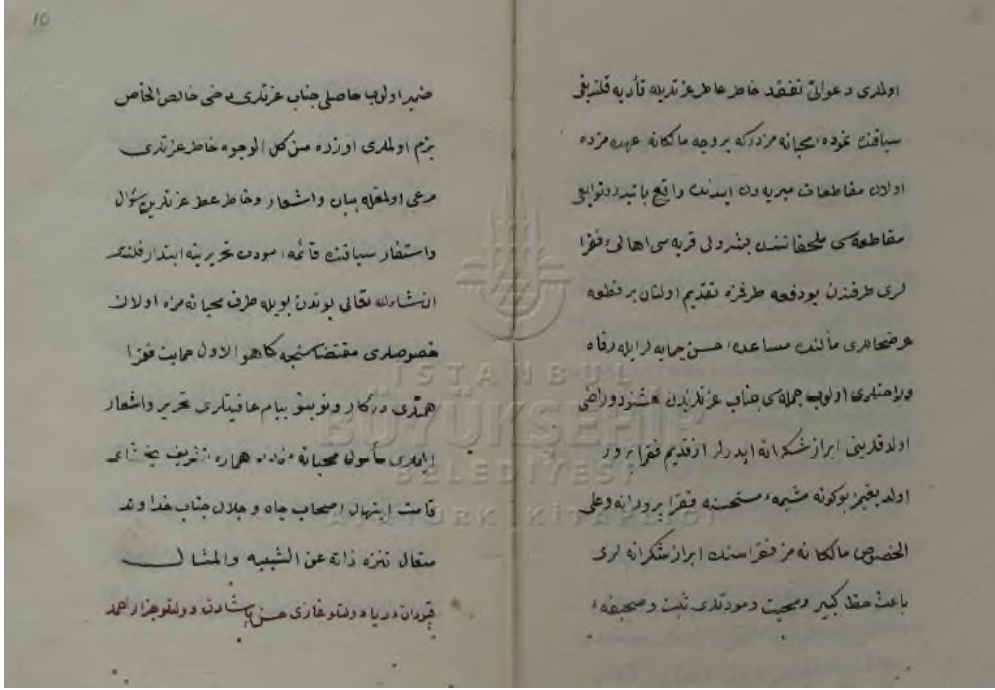 اولملری دعواتی تفقد خاطر عاطر عزتلریله تأدیه قلندیغی
سیاقنده نموده محبانه مزدركه بروجه مالكانه عهده مزده
اولان مقاطعات میریه دن ایدنده واقع توابعی
مقاطعه سی ملحقاتندن قریه سی اهالی فقرا
لری طرفندن بودفعه طرفمزه تقدیم اولنان برقطعه
عرضحاللری مآلنده مساعده حسن حمایه لرایله رفاه
وراحتلری اولوب جمله سی جناب عزتلرندن خشنود وراضی
اولدقلرینی ابراز شكرانه ایدرلر ازقدیم فقرا پرور
اولدیغیز بوكونه شیمهٔ مستحسنه فقرا پرورانه وعلی
الخصوص مالكانه مز فقراسنك ابراز شكرانه لری
باعث حظ كبیر ومحبت ومودتلری ثبت وصحیفهٔ
10
ضمیر اولوب حاصلی جناب عزتلری دخی خالص الخاص
بزم اولملری اوزره من كل الوجوه خاطر عزتلری
مرعی اولمغله بیان واشعار وخاطر عطر عزتلرین سؤال
واستفسار سیاقنده قائمهٔ مودت تحریرینه ابتدار قلندی
انشاءالله تعالی بوندن بویله طرف محبانه مزه اولان
خصوصلری مقتضاسنجه كماهو الاول حمایت فقرا
همتلری دركار ونوبنو پیام عافیتلری تحریر واشعار
ایلملری مأمول محبانه همواره تشریف بخشای
قامت ابتهال اصحاب جاه وجلال جناب خداوند
متعال تنزه ذاته عن الشبیه والمثال
قپودان دریا دولتلو غازی حسن پاشادن دولتلو جزار احمد
ISTANBUL
BÜYÜKŞEHİR
BELEDİYESİ
ATATÜRK KİTAPLIĞI